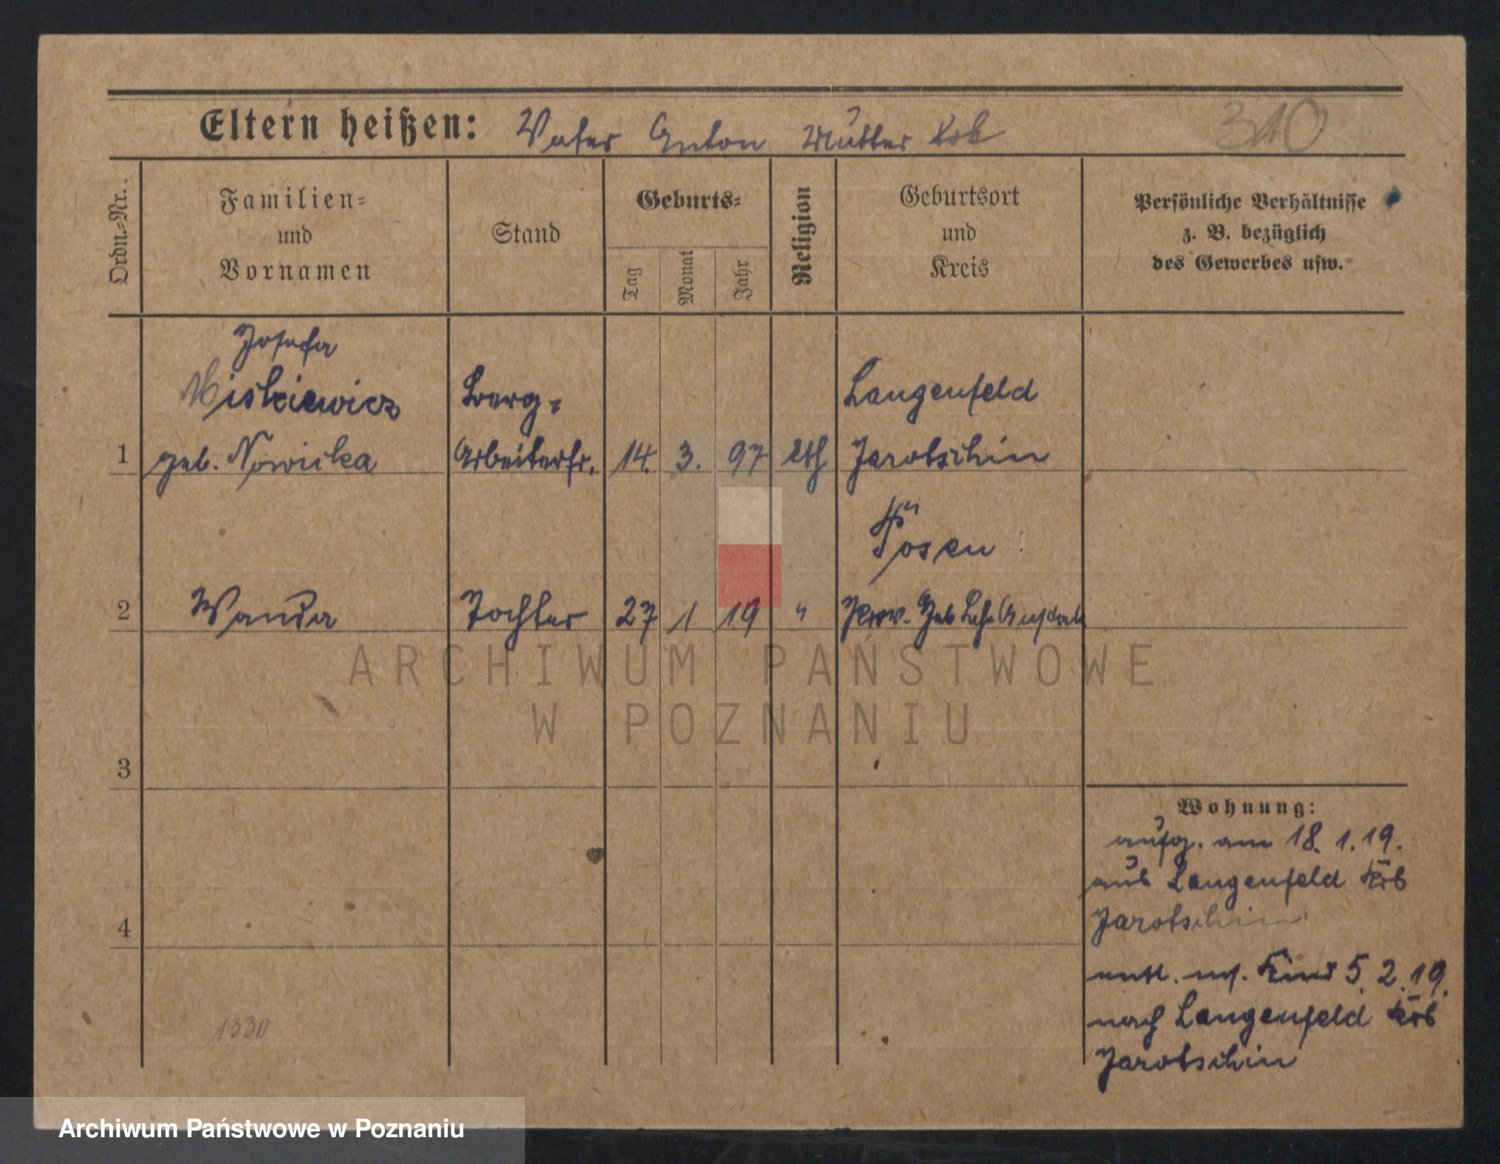 Eltern heißen: Vater Anton Mutter
310
Ordn.-Nr.
Familien-
und
Vornamen
Stand
Geburts-
Tag
Monat
Jahr
Religion
Geburtsort
und
Kreis
Persönliche Verhältnisse
z. B. bezüglich
des Gewerbes usw.
Josefa
Miskiewicz
geb. Nowicka
1
Berg-
Arbeiterfr.
14. 3. 97
kth
Langenfeld
Jarotschin
Posen
2
Wanda
Tochter
27 1 19
"
Prov. Heb Lehr Anstalt
3
4
Wohnung:
aufg. am 18. 1. 19.
aus Langenfeld Krs
Jarotschin
entl. m. Kind 5. 2. 19.
nach Langenfeld Krs
Jarotschin
1330
ARCHIWUM PAŃSTWOWE
W POZNANIU
Archiwum Państwowe w Poznaniu